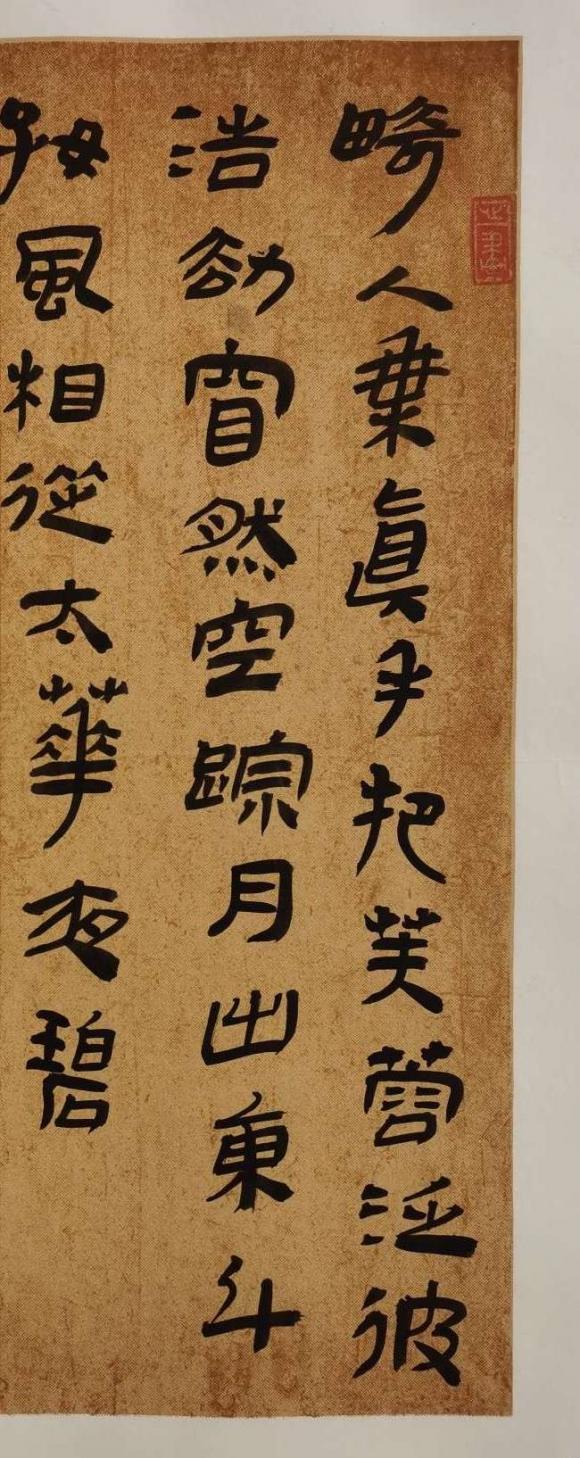 畸人乘眞手把芙蓉泛彼
浩劫窅然空踪月出東斗
好風相從太華夜碧